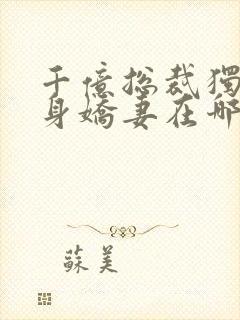 千億總裁獨
身嬌妻在哪
蘇美